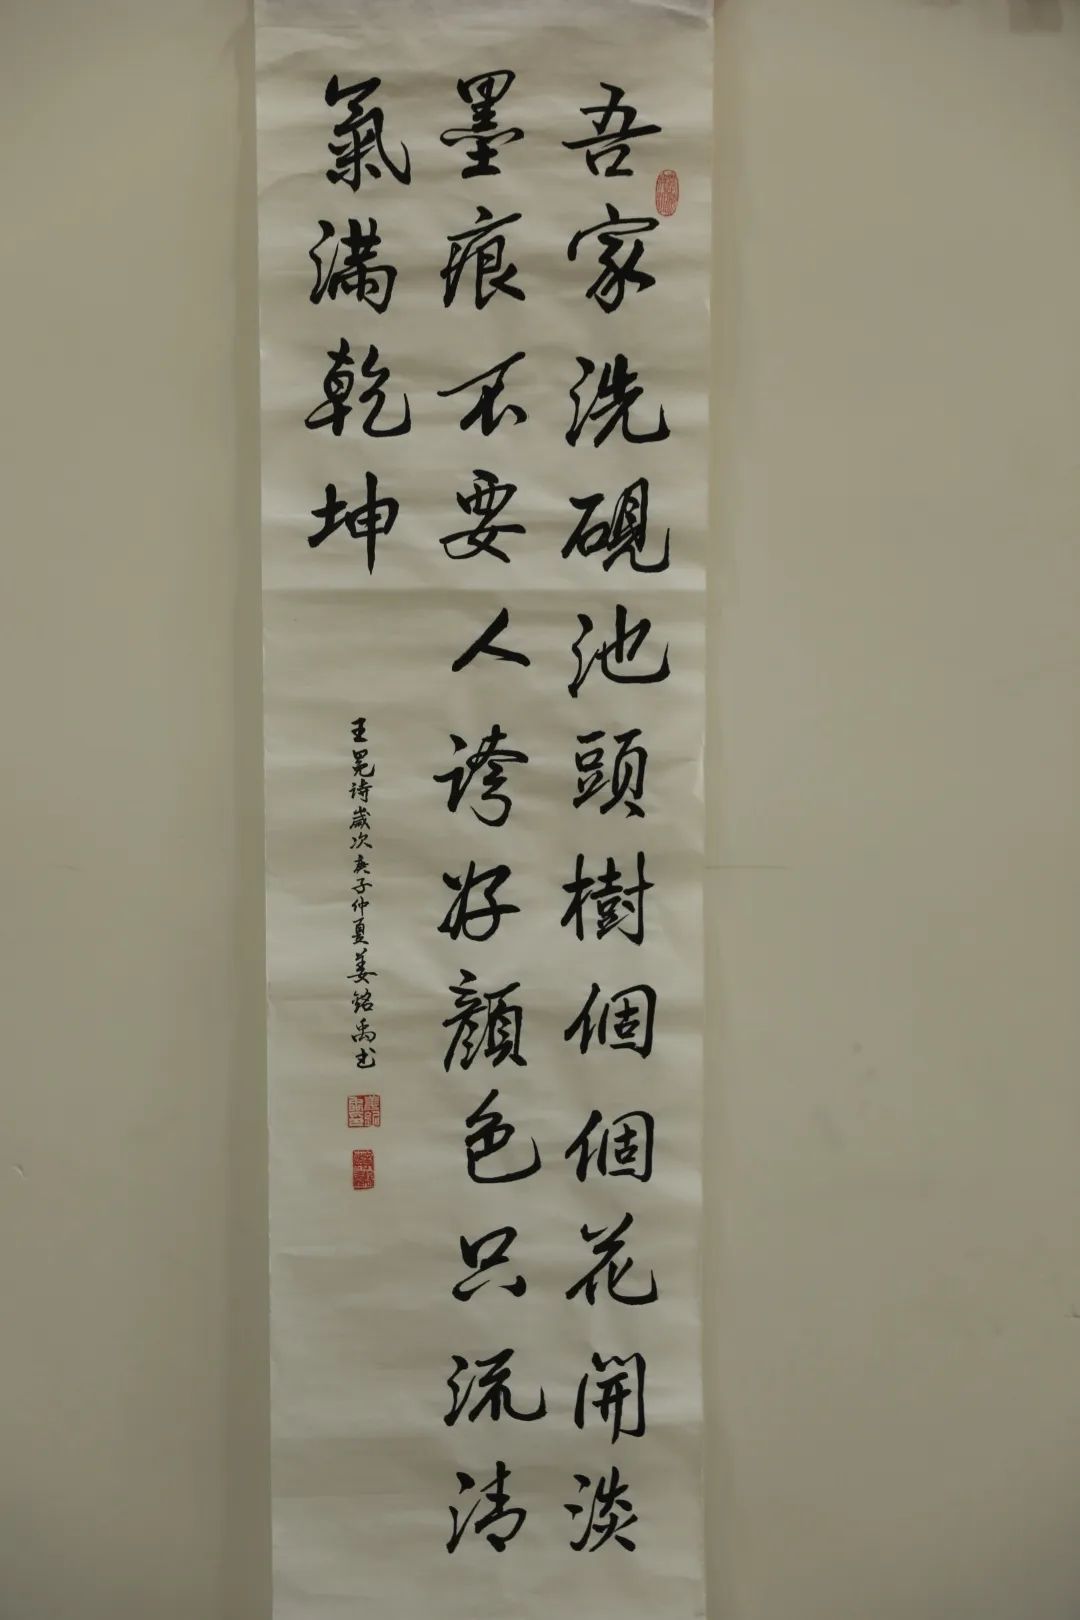 吾家洗硯池頭樹個個花開淡
墨痕不要人誇好顏色只流清
氣滿乾坤
王冕诗歲次庚子仲夏姜銘禹书